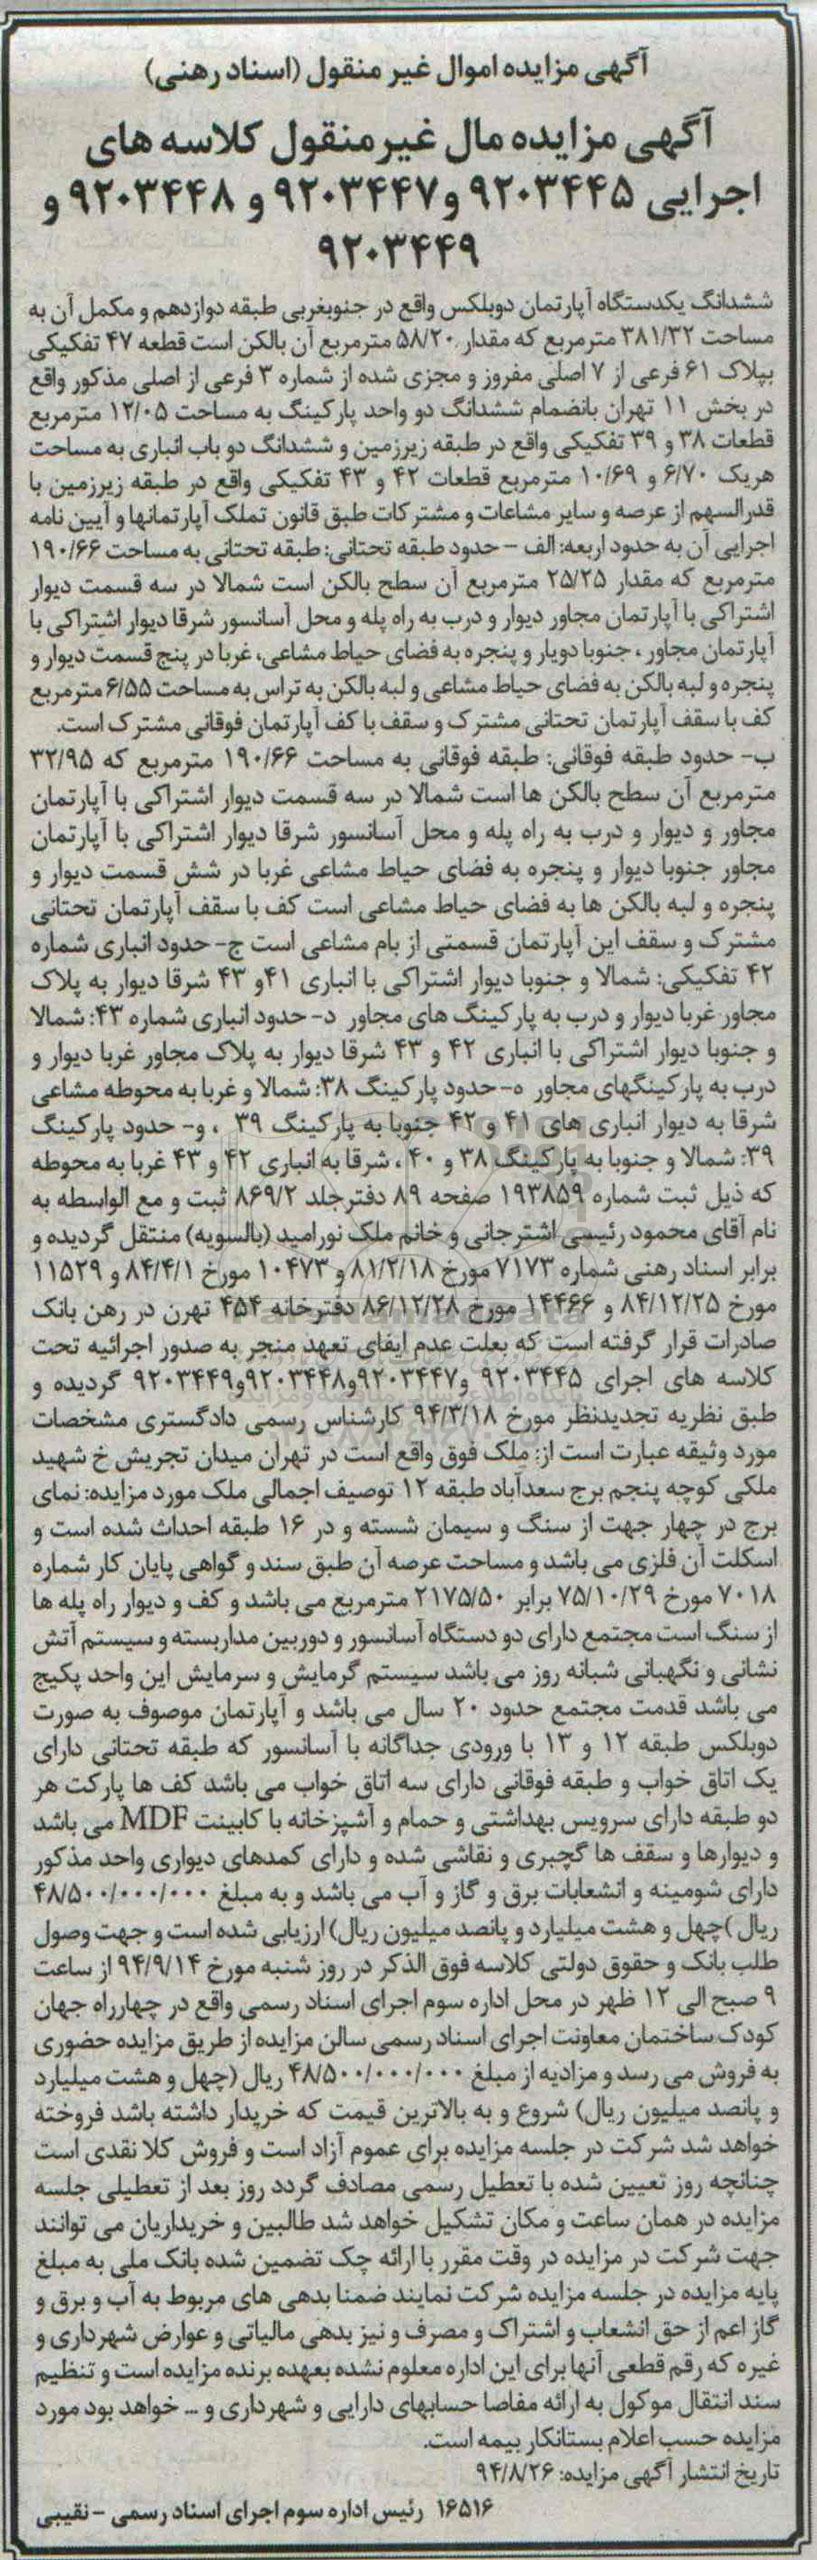 آگهی مزایده اموال غیر منقول (اسناد رهنی)
آگهی مزایده مال غیرمنقول کلاسه های
اجرایی ۹۲۰۳۴۴۵ و۹۲۰۳۴۴۷ و ۹۲۰۳۴۴۸ و
۹۲۰۳۴۴۹
ششدانگ یکدستگاه آپارتمان دوبلکس واقع در جنوبغربی طبقه دوازدهم و مکمل آن به
مساحت ۳۸۱/۳۲ مترمربع که مقدار ۵۸/۲۰ مترمربع آن بالکن است قطعه ۴۷ تفکیکی
بپلاک ۶۱ فرعی از ۷ اصلی مفروز و مجزی شده از شماره ۳ فرعی از اصلی مذکور واقع
در بخش ۱۱ تهران بانضمام ششدانگ دو واحد پارکینگ به مساحت ۱۲/۰۵ مترمربع
قطعات ۳۸ و ۳۹ تفکیکی واقع در طبقه زیرزمین و ششدانگ دو باب انباری به مساحت
هریک ۶/۷۰ و ۱۰/۶۹ مترمربع قطعات ۴۲ و ۴۳ تفکیکی واقع در طبقه زیرزمین با
قدرالسهم از عرصه و سایر مشاعات و مشترکات طبق قانون تملک آپارتمانها و آیین نامه
اجرایی آن به حدود اربعه: الف – حدود طبقه تحتانی: طبقه تحتانی به مساحت ۱۹۰/۶۶
مترمربع که مقدار ۲۵/۲۵ مترمربع آن سطح بالکن است شمالا در سه قسمت دیوار
اشتراکی با آپارتمان مجاور دیوار و درب به راه پله و محل آسانسور شرقا دیوار اشتراکی با
آپارتمان مجاور ، جنوبا دویار و پنجره به فضای حیاط مشاعی، غربا در پنج قسمت دیوار و
پنجره و لبه بالکن به فضای حیاط مشاعی و لبه بالکن به تراس به مساحت ۶/۵۵ مترمربع
کف با سقف آپارتمان تحتانی مشترک و سقف با کف آپارتمان فوقانی مشترک است.
ب- حدود طبقه فوقانی: طبقه فوقانی به مساحت ۱۹۰/۶۶ مترمربع که ۳۲/۹۵
مترمربع آن سطح بالکن ها است شمالا در سه قسمت دیوار اشتراکی با آپارتمان
مجاور و دیوار و درب به راه پله و محل آسانسور شرقا دیوار اشتراکی با آپارتمان
مجاور جنوبا دیوار و پنجره به فضای حیاط مشاعی غربا در شش قسمت دیوار و
پنجره و لبه بالکن ها به فضای حیاط مشاعی است کف با سقف آپارتمان تحتانی
مشترک و سقف این آپارتمان قسمتی از بام مشاعی است ج- حدود انباری شماره
۴۲ تفکیکی: شمالا و جنوبا دیوار اشتراکی با انباری ۴۱و ۴۳ شرقا دیوار به پلاک
مجاور غربا دیوار و درب به پارکینگ های مجاور د- حدود انباری شماره ۴۳: شمالا
و جنوبا دیوار اشتراکی با انباری ۴۲ و ۴۳ شرقا دیوار به پلاک مجاور غربا دیوار و
درب به پارکینگهای مجاور ه- حدود پارکینگ ۳۸: شمالا و غربا به محوطه مشاعی
شرقا به دیوار انباری های ۴۱ و ۴۲ جنوبا به پارکینگ ۳۹ ، و- حدود پارکینگ
۳۹: شمالا و جنوبا به پارکینگ ۳۸ و ۴۰ ، شرقا به انباری ۴۲ و ۴۳ غربا به محوطه
که ذیل ثبت شماره ۱۹۳۸۵۹ صفحه ۸۹ دفترجلد ۸۶۹/۲ ثبت و مع الواسطه به
نام آقای محمود رئیسی اشترجانی و خانم ملک نورامید (بالسویه) منتقل گردیده و
برابر اسناد رهنی شماره ۷۱۷۳ مورخ ۸۱/۲/۱۸ و ۱۰۴۷۳ مورخ ۸۴/۴/۱ و ۱۱۵۲۹
مورخ ۸۴/۱۲/۲۵ و ۱۴۴۶۶ مورخ ۸۶/۱۲/۲۸ دفترخانه ۴۵۴ تهرن در رهن بانک
صادرات قرار گرفته است که بعلت عدم ایفای تعهد منجر به صدور اجرائیه تحت
کلاسه های اجرای ۹۲۰۳۴۴۵ و۹۲۰۳۴۴۷و۹۲۰۳۴۴۸و۹۲۰۳۴۴۹ گردیده و
طبق نظریه تجدیدنظر مورخ ۹۴/۳/۱۸ کارشناس رسمی دادگستری مشخصات
مورد وثیقه عبارت است از: ملک فوق واقع است در تهران میدان تجریش خ شهید
ملکی کوچه پنجم برج سعدآباد طبقه ۱۲ توصیف اجمالی ملک مورد مزایده: نمای
برج در چهار جهت از سنگ و سیمان شسته و در ۱۶ طبقه احداث شده است و
اسکلت آن فلزی می باشد و مساحت عرصه آن طبق سند و گواهی پایان کار شماره
۷۰۱۸ مورخ ۷۵/۱۰/۲۹ برابر ۲۱۷۵/۵۰ مترمربع می باشد و کف و دیوار راه پله ها
از سنگ است مجتمع دارای دو دستگاه آسانسور و دوربین مداربسته و سیستم آتش
نشانی و نگهبانی شبانه روز می باشد سیستم گرمایش و سرمایش این واحد پکیج
می باشد قدمت مجتمع حدود ۲۰ سال می باشد و آپارتمان موصوف به صورت
دوبلکس طبقه ۱۲ و ۱۳ با ورودی جداگانه با آسانسور که طبقه تحتانی دارای
یک اتاق خواب و طبقه فوقانی دارای سه اتاق خواب می باشد کف ها پارکت هر
دو طبقه دارای سرویس بهداشتی و حمام و آشپزخانه با کابینت MDF می باشد
و دیوارها و سقف ها گچبری و نقاشی شده و دارای کمدهای دیواری واحد مذکور
دارای شومینه و انشعابات برق و گاز و آب می باشد و به مبلغ ۴۸/۵۰۰/۰۰۰/۰۰۰
ریال )چهل و هشت میلیارد و پانصد میلیون ریال) ارزیابی شده است و جهت وصول
طلب بانک و حقوق دولتی کلاسه فوق الذکر در روز شنبه مورخ ۹۴/۹/۱۴ از ساعت
۹ صبح الی ۱۲ ظهر در محل اداره سوم اجرای اسناد رسمی واقع در چهارراه جهان
کودک ساختمان معاونت اجرای اسناد رسمی سالن مزایده از طریق مزایده حضوری
به فروش می رسد و مزادیه از مبلغ ۴۸/۵۰۰/۰۰۰/۰۰۰ ریال (چهل و هشت میلیارد
و پانصد میلیون ریال) شروع و به بالاترین قیمت که خریدار داشته باشد فروخته
خواهد شد شرکت در جلسه مزایده برای عموم آزاد است و فروش کلا نقدی است
چنانچه روز تعیین شده با تعطیل رسمی مصادف گردد روز بعد از تعطیلی جلسه
مزایده در همان ساعت و مکان تشکیل خواهد شد طالبین و خریداریان می توانند
جهت شرکت در مزایده در وقت مقرر با ارائه چک تضمین شده بانک ملی به مبلغ
پایه مزایده در جلسه مزایده شرکت نمایند ضمنا بدهی های مربوط به آب و برق و
گاز اعم از حق انشعاب و اشتراک و مصرف و نیز بدهی مالیاتی و عوارض شهرداری و
غیره که رقم قطعی آنها برای این اداره معلوم نشده بعهده برنده مزایده است و تنظیم
سند انتقال موکول به ارائه مفاصا حسابهای دارایی و شهرداری و ... خواهد بود مورد
مزایده حسب اعلام بستانکار بیمه است.
تاریخ انتشار آگهی مزایده: ۹۴/۸/۲۶
۱۶۵۱۶ رئیس اداره سوم اجرای اسناد رسمی – نقیبی